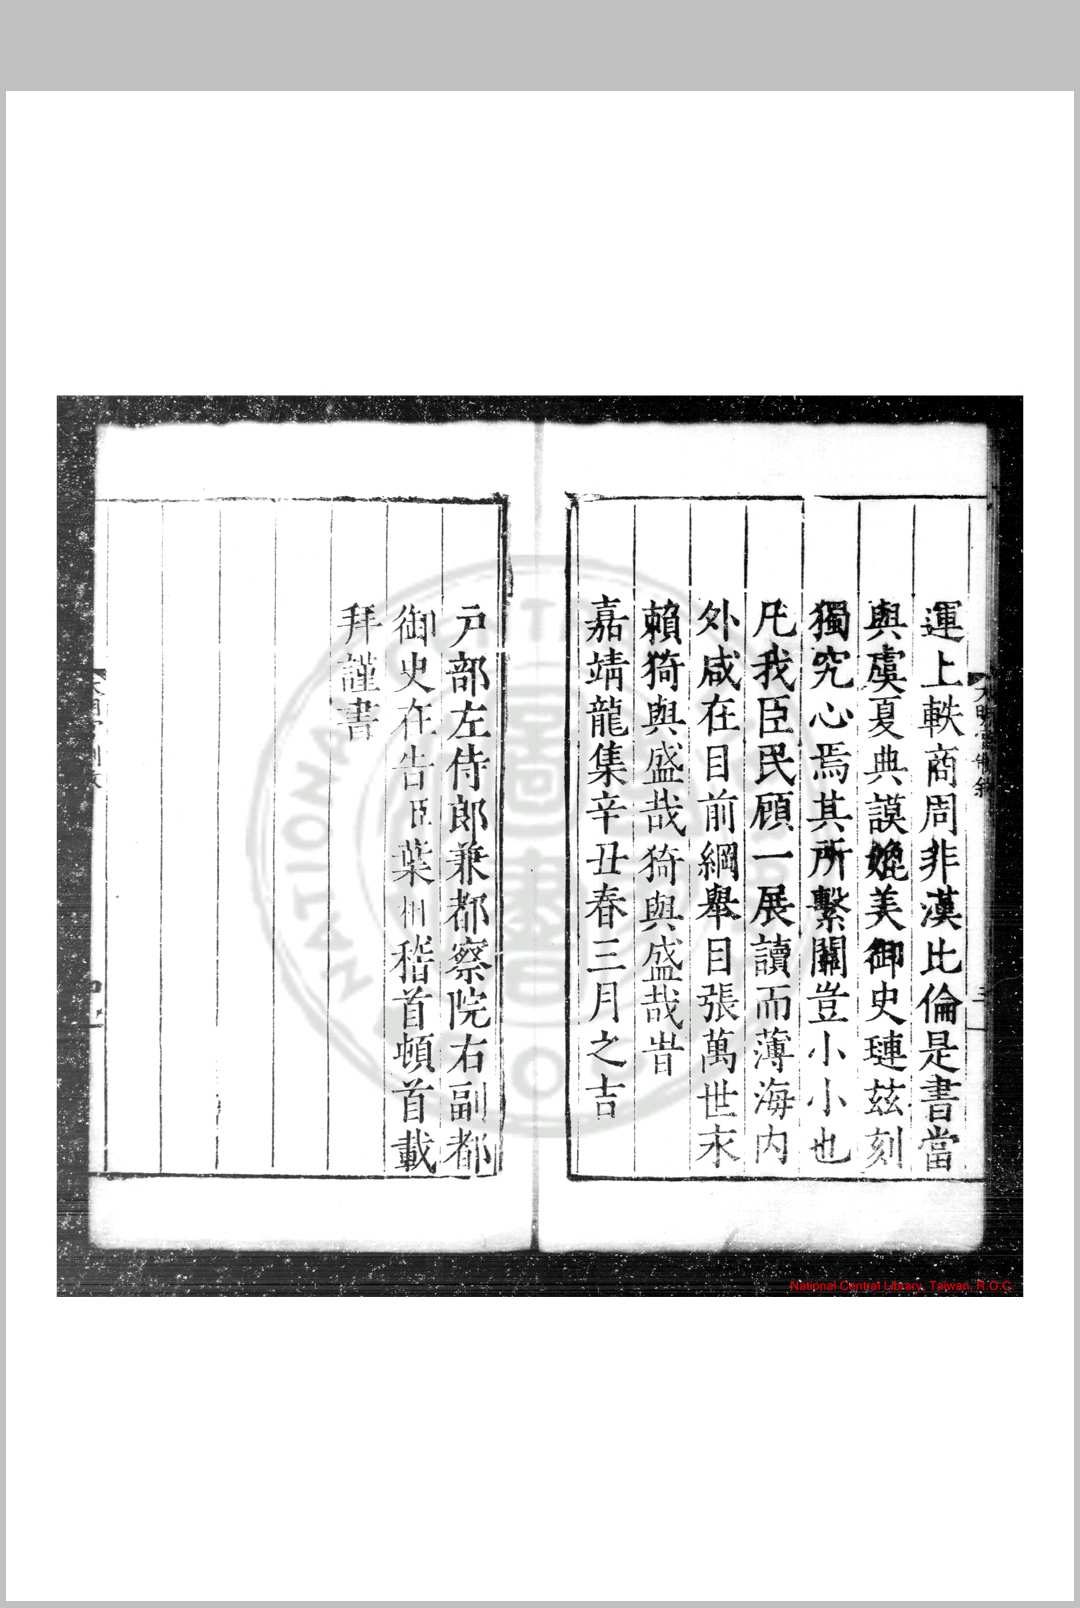 運上軼商周非漢比倫是書當
與虞夏典謨媲美御史璉茲刻
獨究心焉其所繫關豈小小也
凡我臣民顧一展讀而薄海內
外咸在目前綱舉目張萬世永
賴猗與盛哉猗與盛哉旹
嘉靖龍集辛丑春三月之吉
戶部左侍郎兼都察院右副都
御史在告臣葉相稽首頓首載
拜謹書
National Central Library, Taiwan, R.O.C